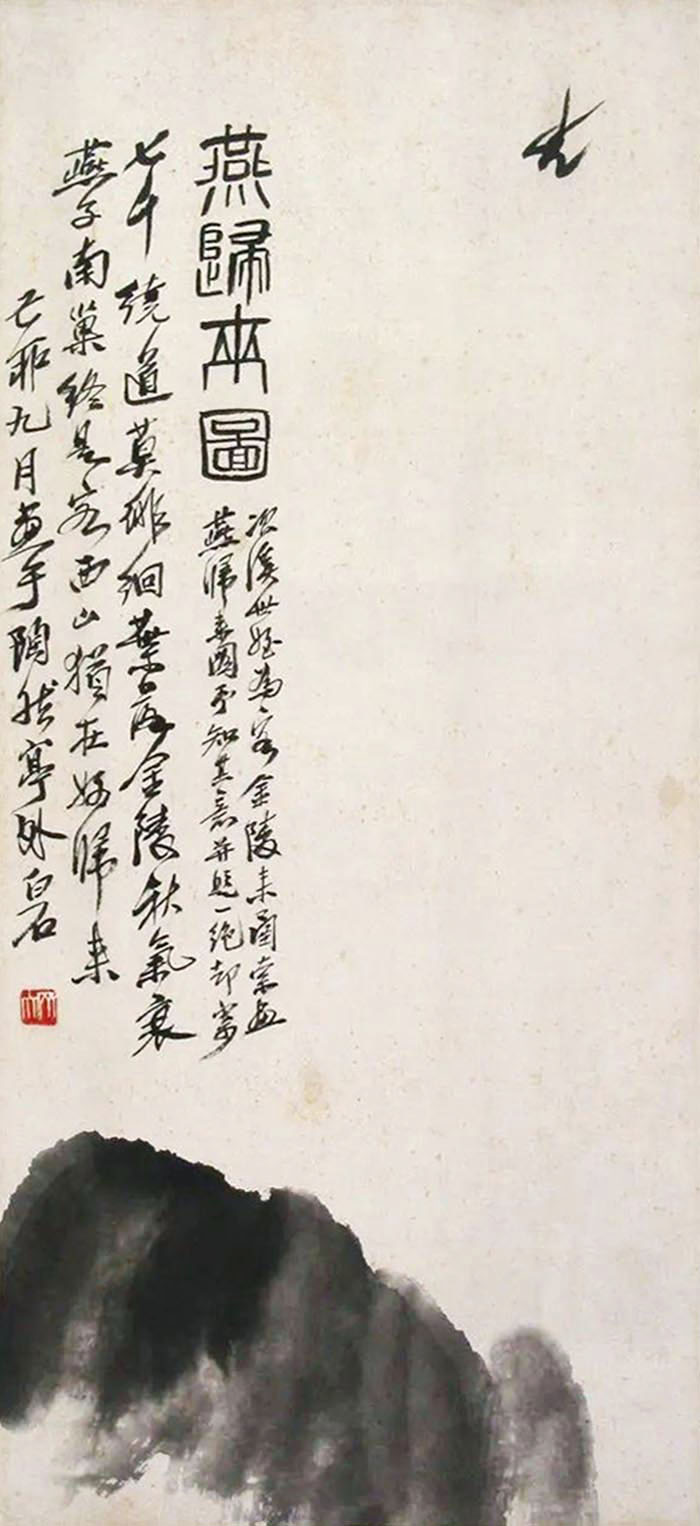 燕歸來圖
次溪世姪為客金陵來函索畫
燕歸來圖予知其意并題一絕却寄
七千繞道莫徘徊葉落金陵秋氣衰
燕子南巢終是客西山猶在好歸來
己卯九月畫于陶然亭外白石